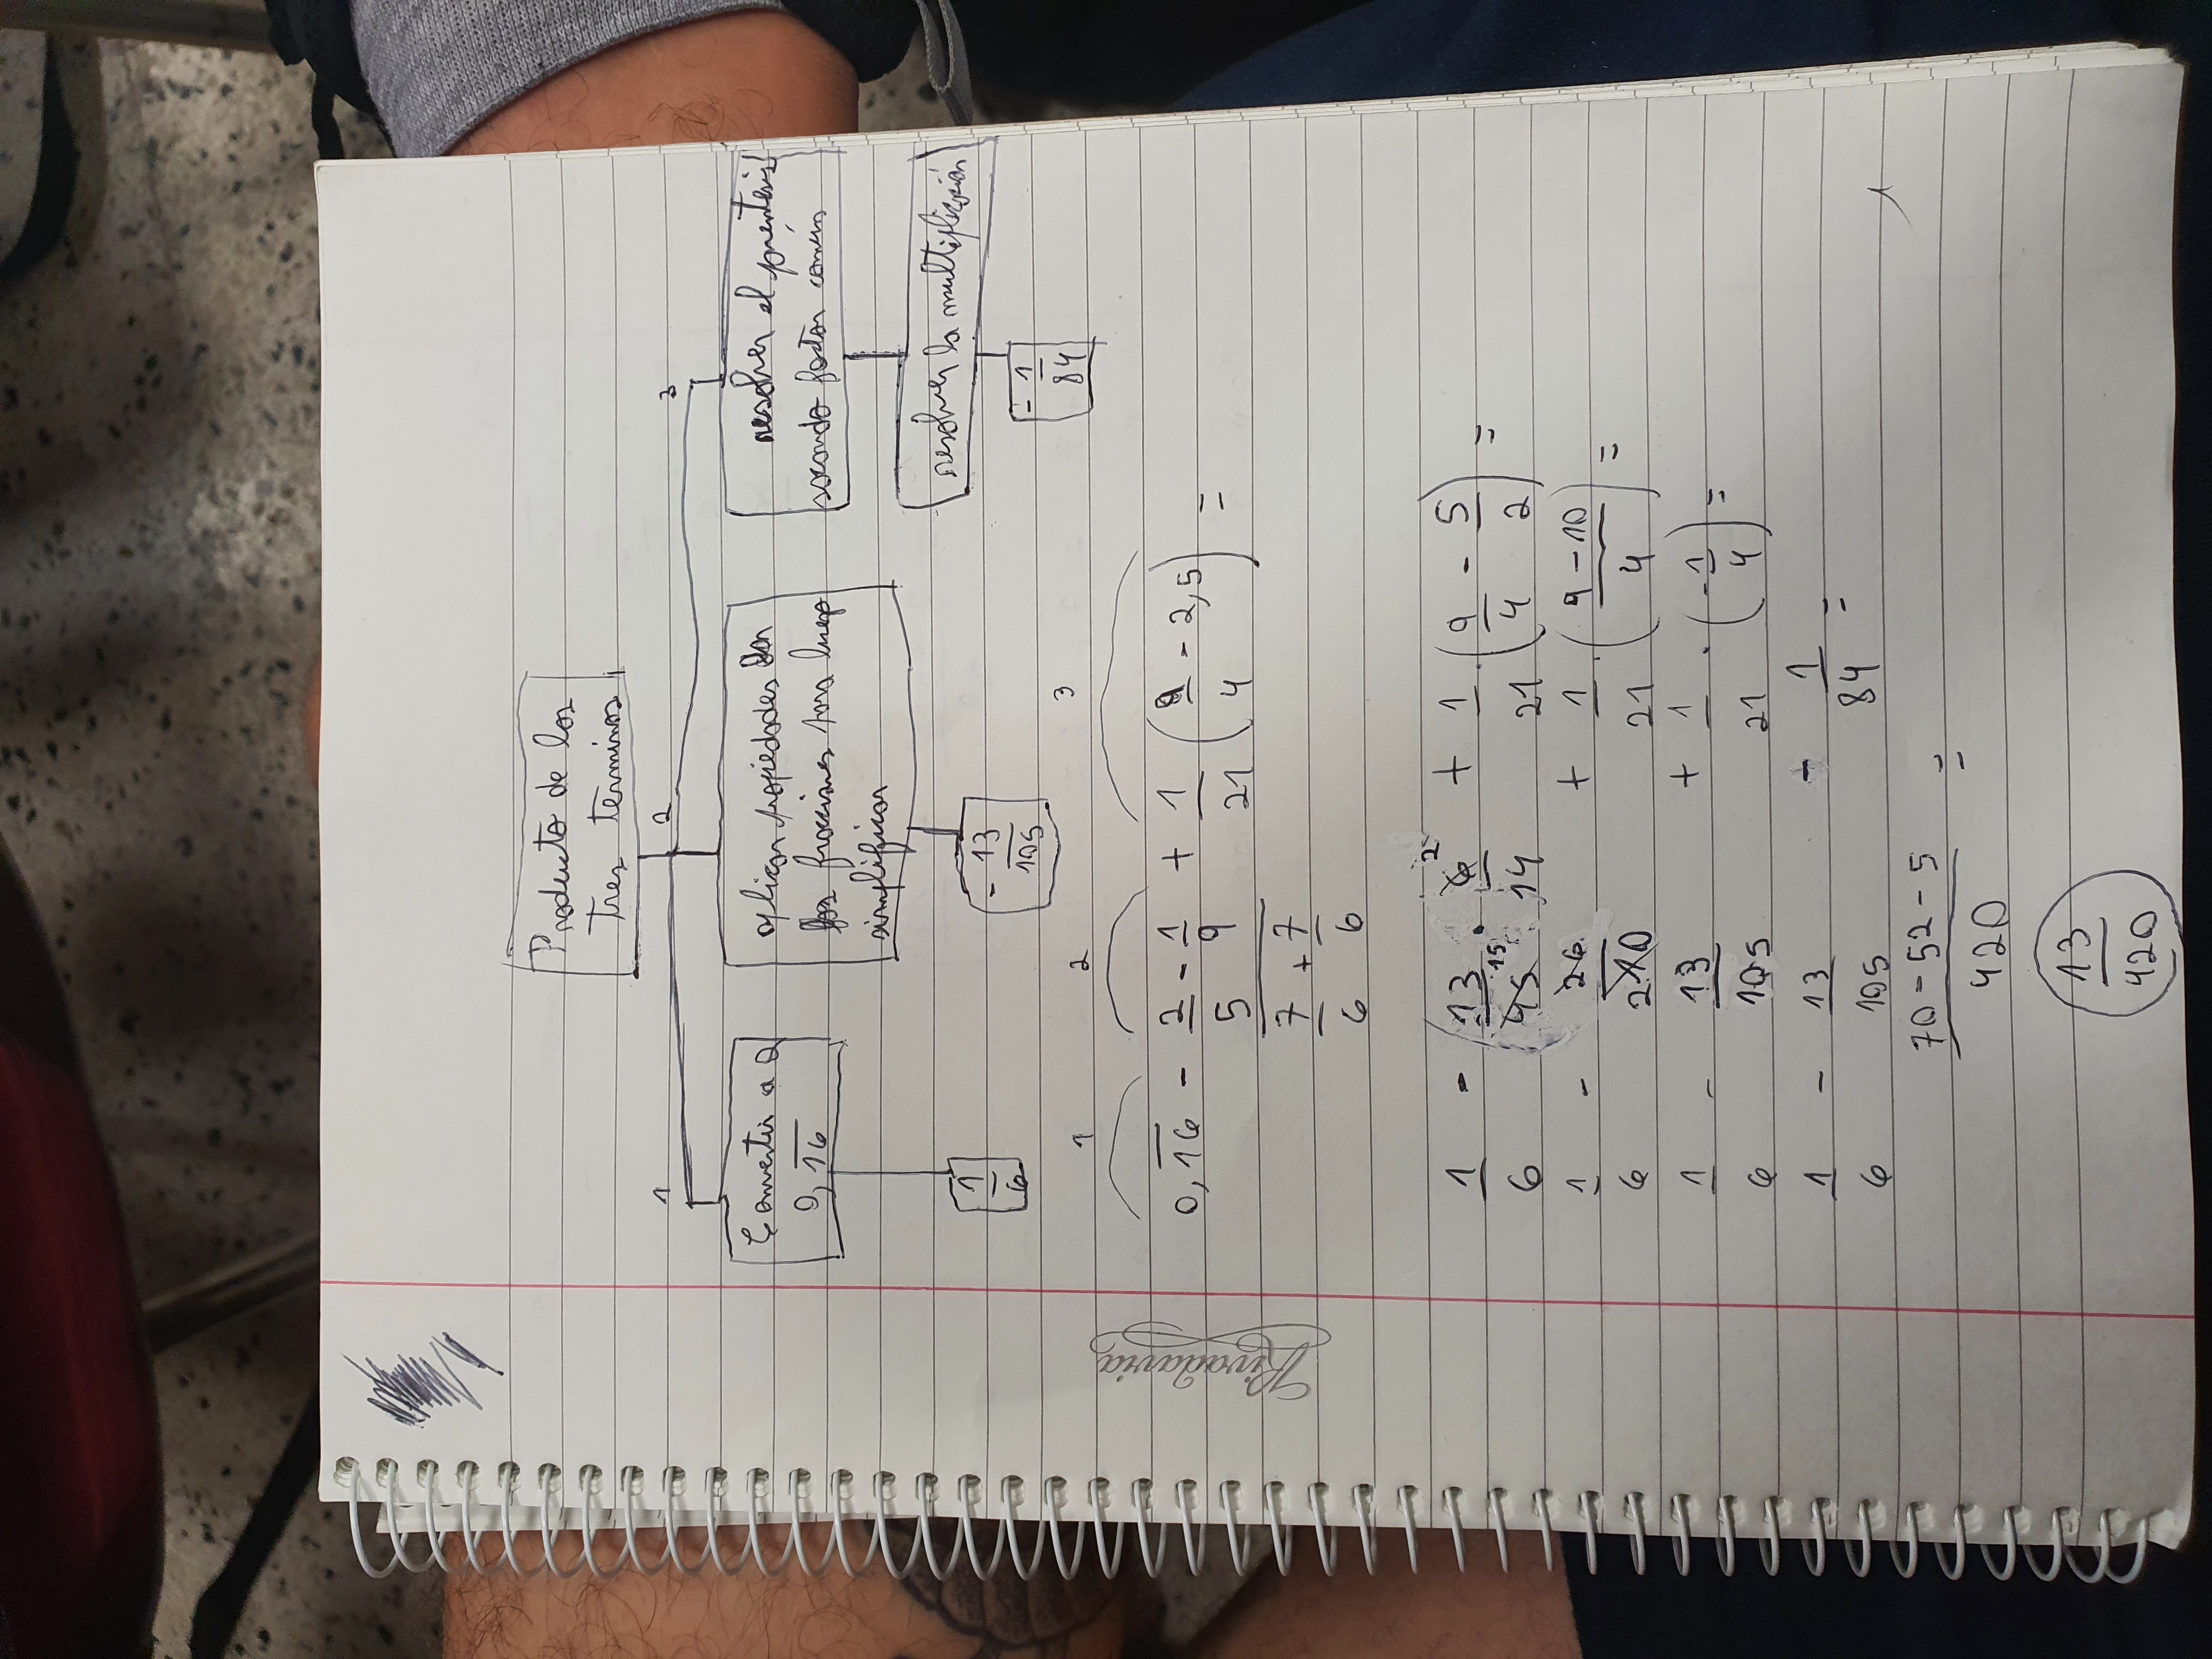 Producto de los
tres terminos
1 2 3
Convertir a Q
0,1̅6̅
aplicar propiedades
fracciones para luego
simplificar
resolver el parentesis
sacando factor común
resolver la multiplicación
1/6
- 13/105
- 1/84
1 2 3
0,1̅6̅ - (2/5 - 1/9)/(7/6 + 7/6) + 1/21 (9/4 - 2,5) =
1/6 - (13/45 15 · 6/14 2 + 1/21 · (9/4 - 5/2) =
1/6 - 26/210 + 1/21 · (9 - 10)/4 =
1/6 - 13/105 + 1/21 · (- 1/4) =
1/6 - 13/105 - 1/84 =
(70 - 52 - 5)/420 =
13/420
Rivadavia